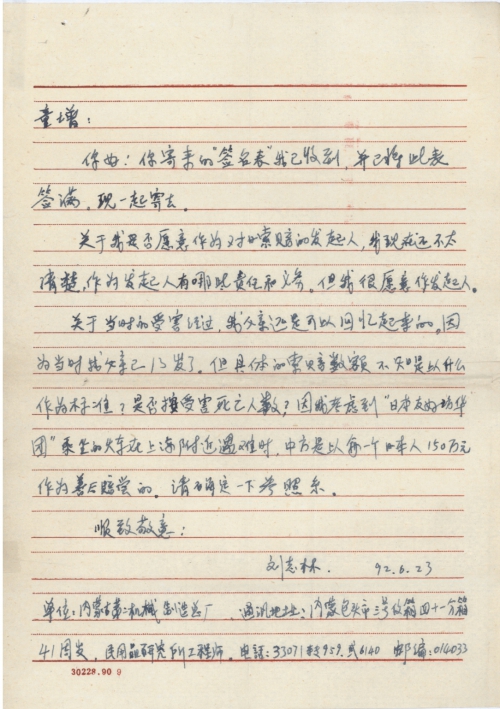 童增：
你好！你寄来的“签名表”我已收到，并已将此表
签满，现一起寄去。
关于我是否愿意作为对日索赔的发起人，我现在还不太
清楚，作为发起人有哪些责任和义务。但我很愿意作发起人。
关于当时的受害经过，我父亲还是可以回忆起来的。因
为当时我父亲已13岁了。但具体的索赔数额不知是以什么
作为标准？是否按受害死亡人数？因我考虑到“日本友好访华
团”乘坐的火车在上海附近遇难时，中方是以每一个日本人150万元
作为善后赔偿的。请确定一下参照系。
顺致敬意！
刘志林 92.6.23
单位：内蒙古第二机械制造总厂 通讯地址：内蒙包头市三号信箱四十一分箱
41 民用品研究所工程师。电话：33071转959或6140 邮编：014033
30228.90 9